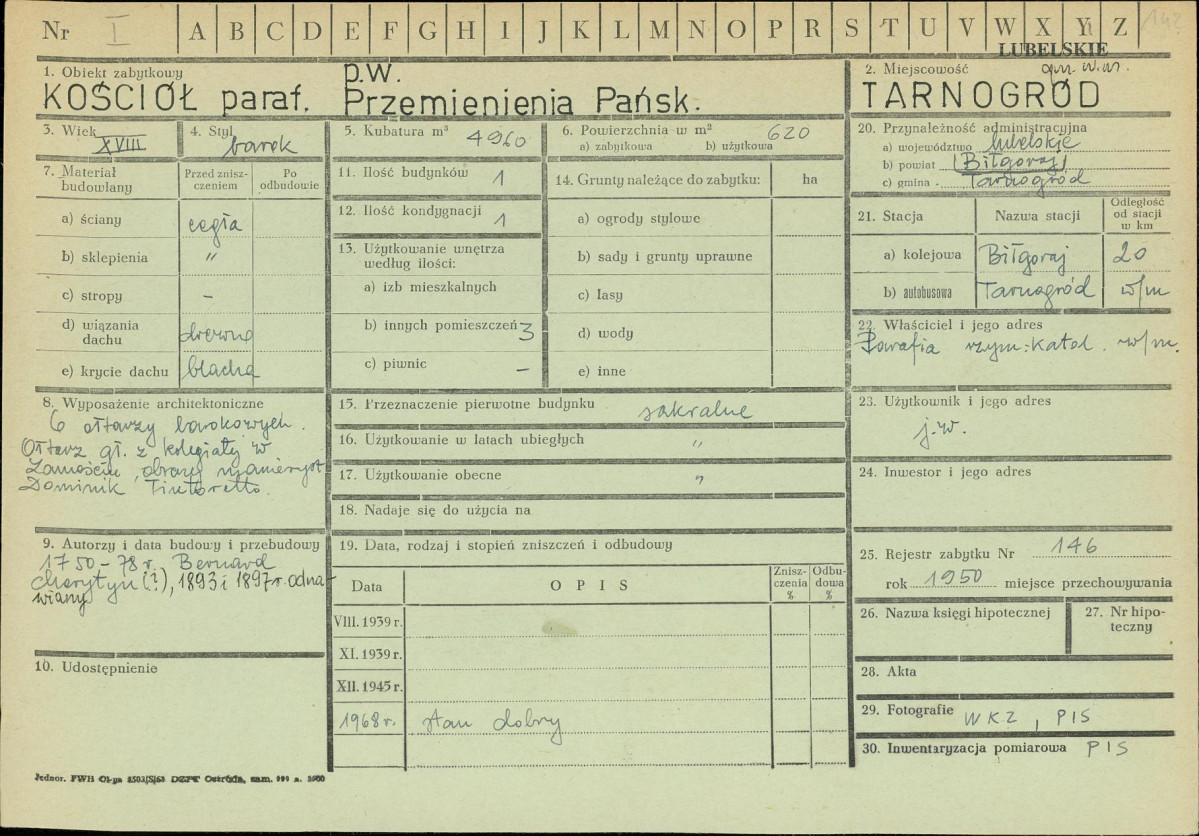 Nr I A B C D E F G H I J K L M N O P R S T U V W X Y Z 142
LUBELSKIE
1. Obiekt zabytkowy
KOŚCIÓŁ paraf. p.w. Przemienienia Pańsk.
2. Miejscowość gm. w.m.
TARNOGRÓD
3. Wiek
XVIII
4. Styl
barok
5. Kubatura m³ 4960
6. Powierzchnia w m² 620
a) zabytkowa b) użytkowa
7. Materiał budowlany
Przed zniszczeniem
Po odbudowie
a) ściany cegła
b) sklepienia "
c) stropy -
d) wiązania dachu drewno
e) krycie dachu blacha
8. Wyposażenie architektoniczne
6 ołtarzy barokowych.
Ołtarz gł. z kolegiaty w
Zamościu, obrazy manieryst
Dominik Tintoretto.
9. Autorzy i data budowy i przebudowy
1750-78 r. Bernard
(?), 1893 i 1897 r. odna-
wiany
10. Udostępnienie
11. Ilość budynków 1
12. Ilość kondygnacji 1
13. Użytkowanie wnętrza według ilości:
a) izb mieszkalnych
b) innych pomieszczeń 3
c) piwnic -
14. Grunty należące do zabytku: ha
a) ogrody stylowe
b) sady i grunty uprawne
c) lasy
d) wody
e) inne
15. Przeznaczenie pierwotne budynku sakralne
16. Użytkowanie w latach ubiegłych "
17. Użytkowanie obecne "
18. Nadaje się do użycia na
19. Data, rodzaj i stopień zniszczeń i odbudowy
Data OPIS Zniszczenia % Odbudowa %
VIII. 1939 r.
XI. 1939 r.
XII. 1945 r.
1968 r. stan dobry
20. Przynależność administracyjna
a) województwo lubelskie
b) powiat (Biłgoraj)
c) gmina Tarnogród
21. Stacja Nazwa stacji Odległość od stacji w km
a) kolejowa Biłgoraj 20
b) autobusowa Tarnogród w/m
22. Właściciel i jego adres
Parafia rzym:katol. w/m.
23. Użytkownik i jego adres
j.w.
24. Inwestor i jego adres
25. Rejestr zabytku Nr 146
rok 1950 miejsce przechowywania
26. Nazwa księgi hipotecznej
27. Nr hipoteczny
28. Akta
29. Fotografie WKZ, PIS
30. Inwentaryzacja pomiarowa PIS